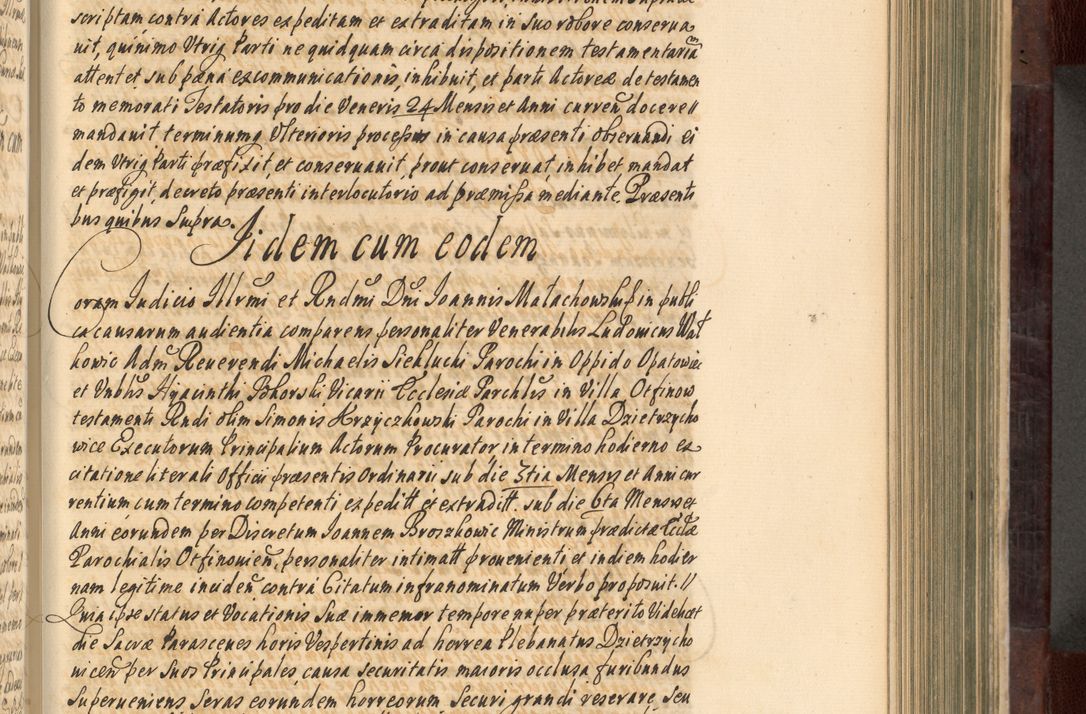 scriptam contra Actores expeditam et extraditam in suo robore conserua
uit, quinimo Utriq Parti ne quidquam circa dispositionem testamentariam
attentet, sub pæna excommunicationis, inhibuit, et parti Actoreæ de testamen
to memorati Testatoris pro die Veneris 24 Mensis et Anni curren̄ docere
mandauit terminumq Ulterioris processus in causa præsenti obseruandi ei
dem Utriq Parti præfixit, et conseruauit, prout conseruat, inhibet, mandat
et præfigit, decreto præsenti interlocutorio ad præmissa mediante. Præsenti
bus quibus Supra.
Iidem cum eodem
Coram Iudicio Illrmi et Rndmi Dni Ioannis Małachowski in publi
ca causarum audientia comparens personaliter Venerabilis Ludovicus Wat
kowic Adm Reuerendi Michaelis Siekluchi Parochi in Oppido Opatowiec
et Vnblis Hyacinthi Bhorski Vicarii Ecclesiæ Parchlis in Villa Otfinow
testamenti Rndi olim Simonis Krzyczkowski Parochi in Villa Dzietrzycho
wice Executorum Principalium Actorum Procurator in termino hodierno ex
citatione literali Officii præsentis Ordinarii sub die 3tia Mensis et Anni cur
rentium cum termino competenti expeditt et extraditt. sub die 6ta Mensis et
Anni eorundem per Discretum Ioannem Broszkowic Ministrum prædictæ Ecclæ
Parochialis Otfinouien̄, personaliter intimatt prouenienti et in diem hodier
nam legitime inciden̄ contra Citatum infranominatum Verbo proposuit. //
Quia ipse status et Vocationis Suæ immemor tempore nuper præterito Videlicet
die Sacræ Parasceues horis Vespertinis ad horrea Plebanatus Dzietrzycho
uicen̄ per Suos Principales, causa securitatis maioris occlusa, furibundus
Superueniens Seras eorundem horreorum Securi grandi reserare, Seu